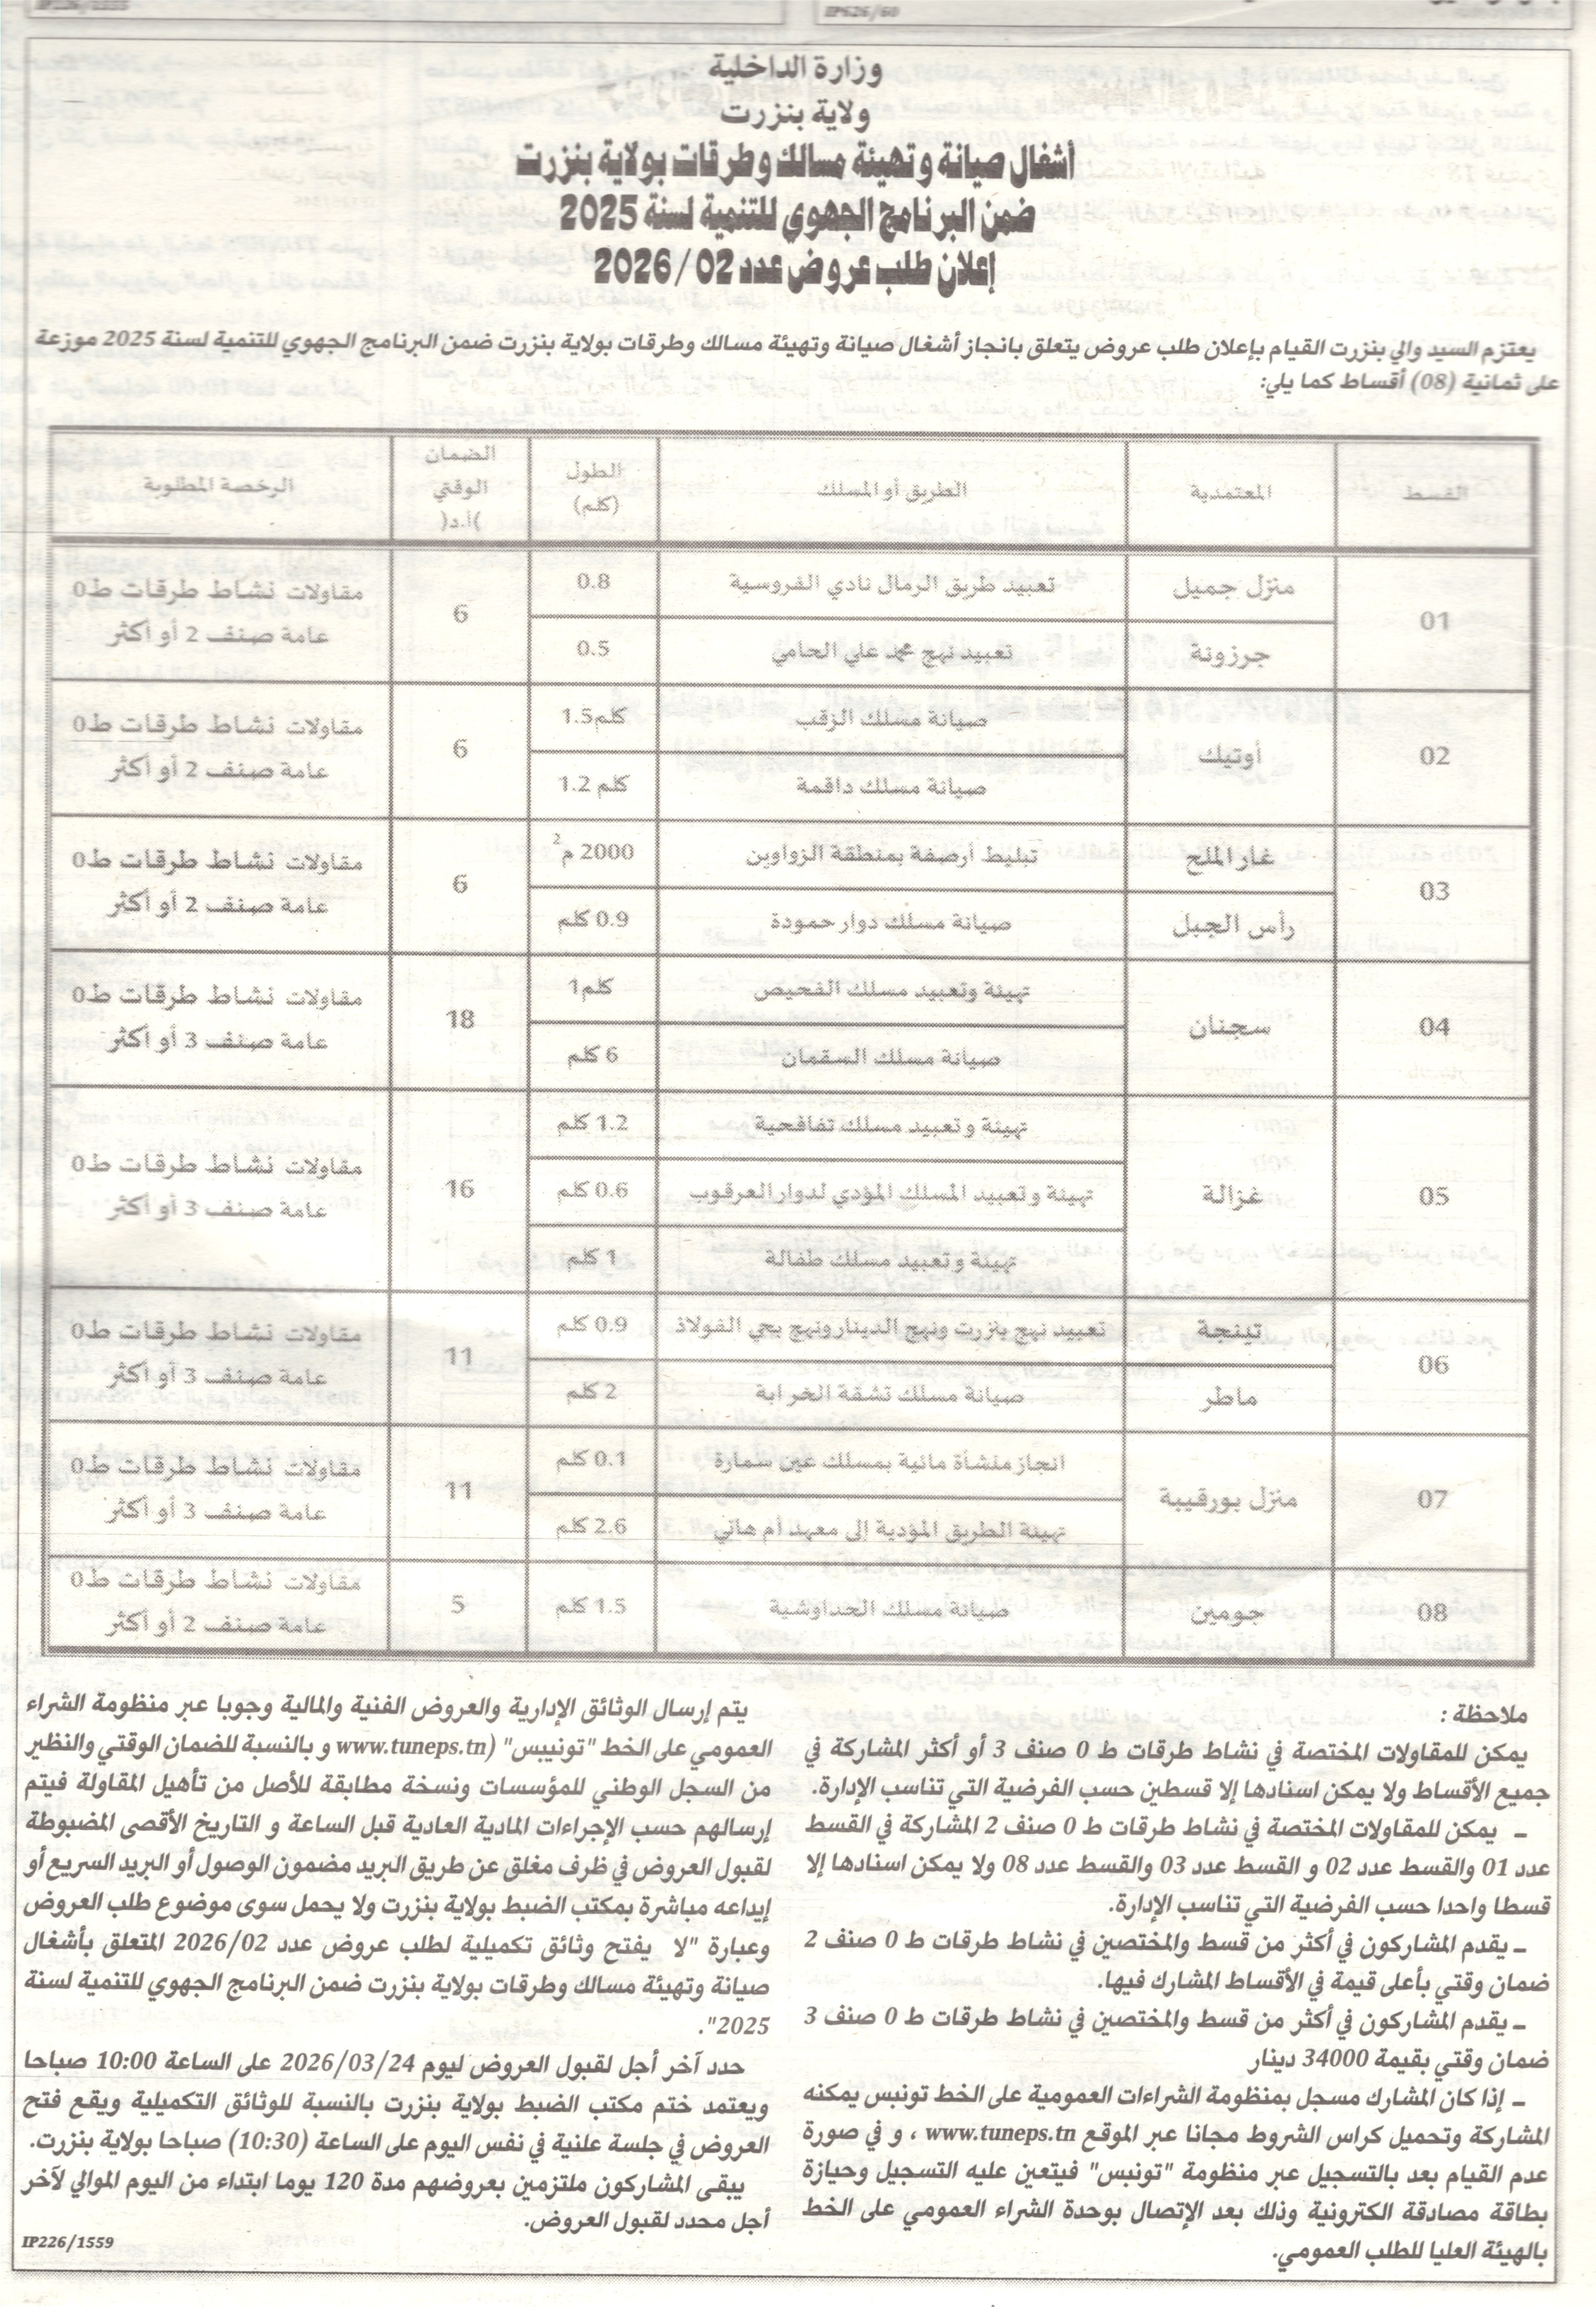 وزارة الداخلية
ولاية بنزرت
أشغال صيانة وتهيئة مسالك وطرقات بولاية بنزرت
ضمن البرنامج الجهوي للتنمية لسنة 2025
إعلان طلب عروض عدد 02 /2026
يعتزم السيد والي بنزرت القيام بإعلان طلب عروض يتعلق بانجاز أشغال صيانة وتهيئة مسالك وطرقات بولاية بنزرت ضمن البرنامج الجهوي للتنمية لسنة 2025 موزعة
على ثمانية (08) أقساط كما يلي:
القسط المعتمدية الطريق أو المسلك الطول (كلم) الضمان الوقتي )أ.د( الرخصة المطلوبة
01 منزل جميل تعبيد طريق الرمال نادي الفروسية 0.8 6 مقاولات نشاط طرقات ط0 عامة صنف 2 أو أكثر
جرزونة تعبيد نهج محمد علي الحامي 0.5
02 أوتيك صيانة مسلك الزقب 1.5كلم 6 مقاولات نشاط طرقات ط0 عامة صنف 2 أو أكثر
صيانة مسلك داقمة 1.2 كلم
03 غار الملح تبليط أرصفة بمنطقة الزواوين 2000 م2 6 مقاولات نشاط طرقات ط0 عامة صنف 2 أو أكثر
رأس الجبل صيانة مسلك دوار حمودة 0.9 كلم
04 سجنان تهيئة وتعبيد مسلك الفحيص 1كلم 18 مقاولات نشاط طرقات ط0 عامة صنف 3 أو أكثر
صيانة مسلك السقمان 6 كلم
05 غزالة تهيئة وتعبيد مسلك تفافحية 1.2 كلم 16 مقاولات نشاط طرقات ط0 عامة صنف 3 أو أكثر
تهيئة وتعبيد المسلك المؤدي لدوار العرقوب 0.6 كلم
تهيئة وتعبيد مسلك طفالة 1 كلم
06 تينجة تعبيد نهج بنزرت ونهج الدينار ونهج بحي الفولاذ 0.9 كلم 11 مقاولات نشاط طرقات ط0 عامة صنف 3 أو أكثر
ماطر صيانة مسلك تشقة الخرابة 2 كلم
07 منزل بورقيبة انجاز منشأة مائية بمسلك عين سمارة 0.1 كلم 11 مقاولات نشاط طرقات ط0 عامة صنف 3 أو أكثر
تهيئة الطريق المؤدية إلى معهد أم هاني 2.6 كلم
08 جومين صيانة مسلك الحداوشية 1.5 كلم 5 مقاولات نشاط طرقات ط0 عامة صنف 2 أو أكثر
ملاحظة :
يمكن للمقاولات المختصة في نشاط طرقات ط 0 صنف 3 أو أكثر المشاركة في
جميع الأقساط ولا يمكن اسنادها إلا قسطين حسب الفرضية التي تناسب الإدارة.
ـ يمكن للمقاولات المختصة في نشاط طرقات ط 0 صنف 2 المشاركة في القسط
عدد 01 والقسط عدد 02 و القسط عدد 03 والقسط عدد 08 ولا يمكن اسنادها إلا
قسطا واحدا حسب الفرضية التي تناسب الإدارة.
ـ يقدم المشاركون في أكثر من قسط والمختصين في نشاط طرقات ط 0 صنف 2
ضمان وقتي بأعلى قيمة في الأقساط المشارك فيها.
ـ يقدم المشاركون في أكثر من قسط والمختصين في نشاط طرقات ط 0 صنف 3
ضمان وقتي بقيمة 34000 دينار
ـ إذا كان المشارك مسجل بمنظومة الشراءات العمومية على الخط تونبس يمكنه
المشاركة وتحميل كراس الشروط مجانا عبر الموقع www.tuneps.tn ، و في صورة
عدم القيام بعد بالتسجيل عبر منظومة "تونبس" فيتعين عليه التسجيل وحيازة
بطاقة مصادقة الكترونية وذلك بعد الإتصال بوحدة الشراء العمومي على الخط
بالهيئة العليا للطلب العمومي.
يتم إرسال الوثائق الإدارية والعروض الفنية والمالية وجوبا عبر منظومة الشراء
العمومي على الخط "تونيبس" (www.tuneps.tn و بالنسبة للضمان الوقتي والنظير
من السجل الوطني للمؤسسات ونسخة مطابقة للأصل من تأهيل المقاولة فيتم
إرسالهم حسب الإجراءات المادية العادية قبل الساعة و التاريخ الأقصى المضبوطة
لقبول العروض في ظرف مغلق عن طريق البريد مضمون الوصول أو البريد السريع أو
إيداعه مباشرة بمكتب الضبط بولاية بنزرت ولا يحمل سوى موضوع طلب العروض
وعبارة "لا يفتح وثائق تكميلية لطلب عروض عدد 2026/02 المتعلق بأشغال
صيانة وتهيئة مسالك وطرقات بولاية بنزرت ضمن البرنامج الجهوي للتنمية لسنة
2025".
حدد آخر أجل لقبول العروض ليوم 2026/03/24 على الساعة 10:00 صباحا
ويعتمد ختم مكتب الضبط بولاية بنزرت بالنسبة للوثائق التكميلية ويقع فتح
العروض في جلسة علنية في نفس اليوم على الساعة (10:30) صباحا بولاية بنزرت.
يبقى المشاركون ملتزمين بعروضهم مدة 120 يوما ابتداء من اليوم الموالي لآخر
أجل محدد لقبول العروض.
IP226/1559